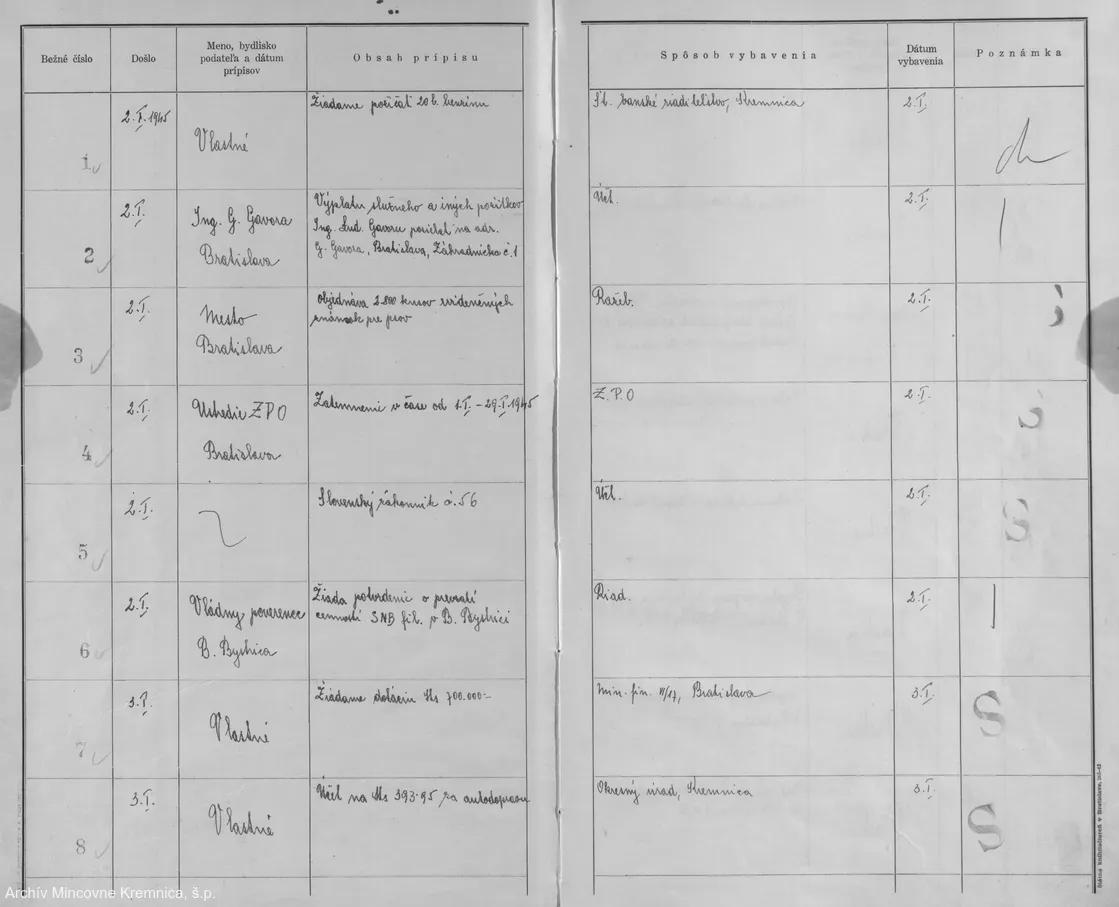 Bežné číslo
Došlo
Meno, bydlisko
podateľa a dátum
prípisov
Obsah prípisu
Spôsob vybavenia
Dátum
vybavenia
Poznámka
1
2.I.1945
Vlastné
Žiadame požičať 20 b. benzinu
Št. banské riaditeľstvo, Kremnica
2.I.
2
2.I.
Ing. G. Gavora
Bratislava
Výplatu služného a iných požitkov
Ing. Ľud. Gavoru posielať na adr.
G. Gavora, Bratislava, Záhradnícka č. 1
Účt.
2.I.
3
2.I.
Mesto
Bratislava
Objednáva 2.800 kusov
známok pre psov
Razeb.
2.I.
4
2.I.
ZPO
Bratislava
Zatemnenie v čase od 1.I. – 29.I.1945
Z.P.O
2.I.
5
2.I.
Slovenský zákonník č. 56
Účt.
2.I.
6
2.I.
Vládny poverenec
B. Bystrica
Žiada potvrdenie o prevzatí
cenností SNB fil. v B. Bystrici
Riad.
2.I.
7
3.I.
Vlastné
Žiadame dotáciu Ks 700.000–
Min. fin. VI/17, Bratislava
3.I.
8
3.I.
Vlastné
Účet na Ks 393.95 za autodopravu
Okresný úrad, Kremnica
3.I.
Archív Mincovne Kremnica, š.p.